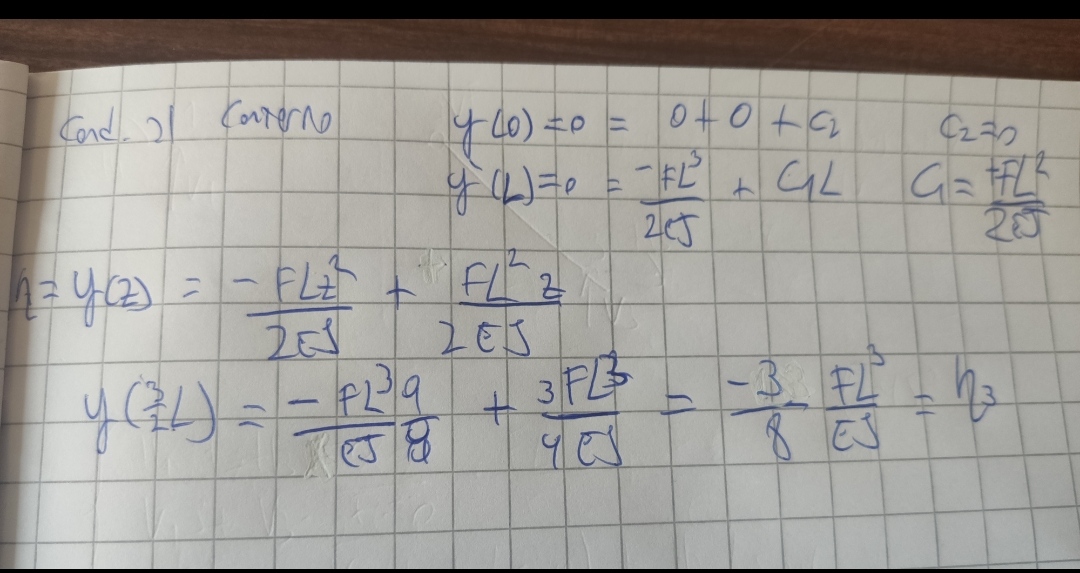 Cond. al Contorno y(0)=0 = 0+0+C₂ C₂=0
y(L)=0 = -FL³/2EJ + C₁L C₁ = +FL²/2EJ
η = y(z) = -FLz²/2EJ + FL²z/2EJ
y(3/2 L) = -FL³/EJ 9/8 + 3FL³/4EJ = -3/8 FL³/EJ = η₃